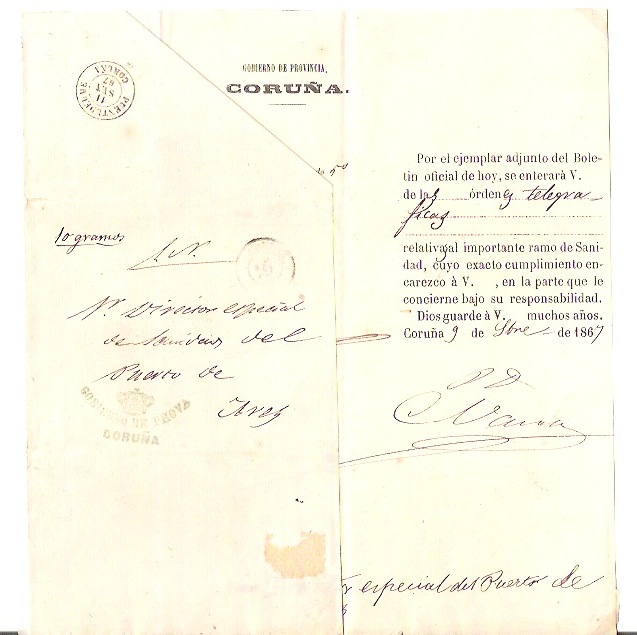 PUENTEDEUME
11
SET
67
CORUÑA
GOBIERNO DE PROVINCIA,
CORUÑA.
10 gramos
S. N.
Sr. Director especial
de Sanidad del
Puerto de
Ares
GOBIERNO DE PROVA
CORUÑA
Por el ejemplar adjunto del Bole-
tin oficial de hoy, se enterará V.
de las órdenes telegra-
ficas
relativas al importante ramo de Sani-
dad, cuyo exacto cumplimiento en-
carezco à V. , en la parte que le
concierne bajo su responsabilidad.
Dios guarde à V. muchos años.
Coruña 9 de Sbre de 1867
especial del Puerto de